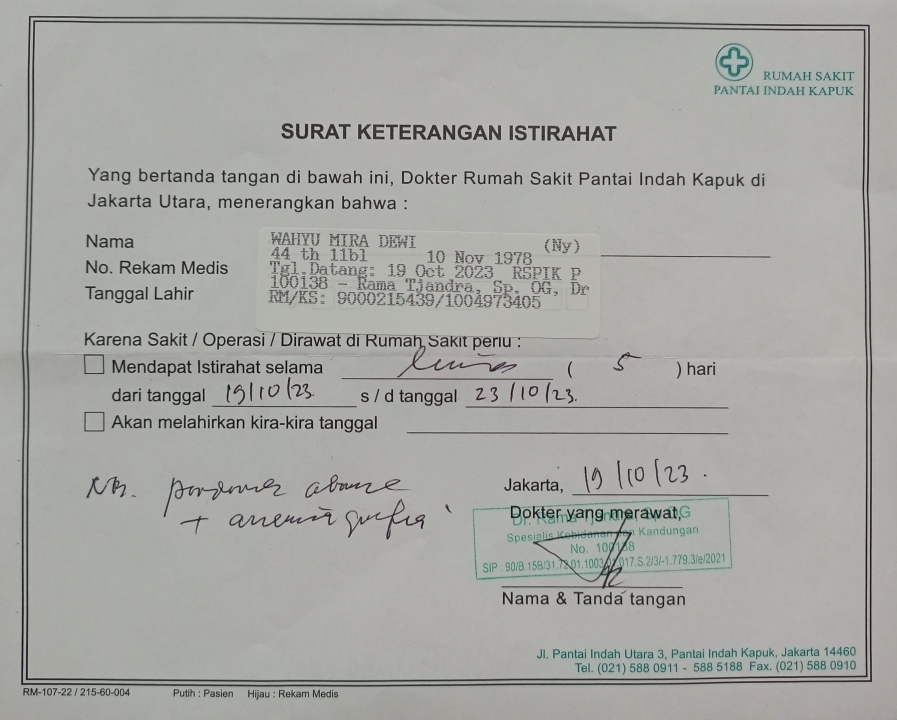 RUMAH SAKIT
PANTAI INDAH KAPUK
SURAT KETERANGAN ISTIRAHAT
Yang bertanda tangan di bawah ini, Dokter Rumah Sakit Pantai Indah Kapuk di
Jakarta Utara, menerangkan bahwa :
Nama WAHYU MIRA DEWI (Ny)
44 th 11bl 10 Nov 1978
No. Rekam Medis Tgl.Datang: 19 Oct 2023 RSPIK P
100138 - Rama Tjandra, Sp. OG, Dr
Tanggal Lahir RM/KS: 9000215439/1004973405
Karena Sakit / Operasi / Dirawat di Rumah Sakit perlu :
Mendapat Istirahat selama ( 5 ) hari
dari tanggal 19/10/23 s / d tanggal 23/10/23.
Akan melahirkan kira-kira tanggal
NB.
+ anemia
Jakarta, 19/10/23.
Dokter yang merawat,
Spesialis Kebidanan dan Kandungan
No. 100138
Nama & Tanda tangan
Jl. Pantai Indah Utara 3, Pantai Indah Kapuk, Jakarta 14460
Tel. (021) 588 0911 - 588 5188 Fax. (021) 588 0910
RM-107-22 / 215-60-004 Putih : Pasien Hijau : Rekam Medis